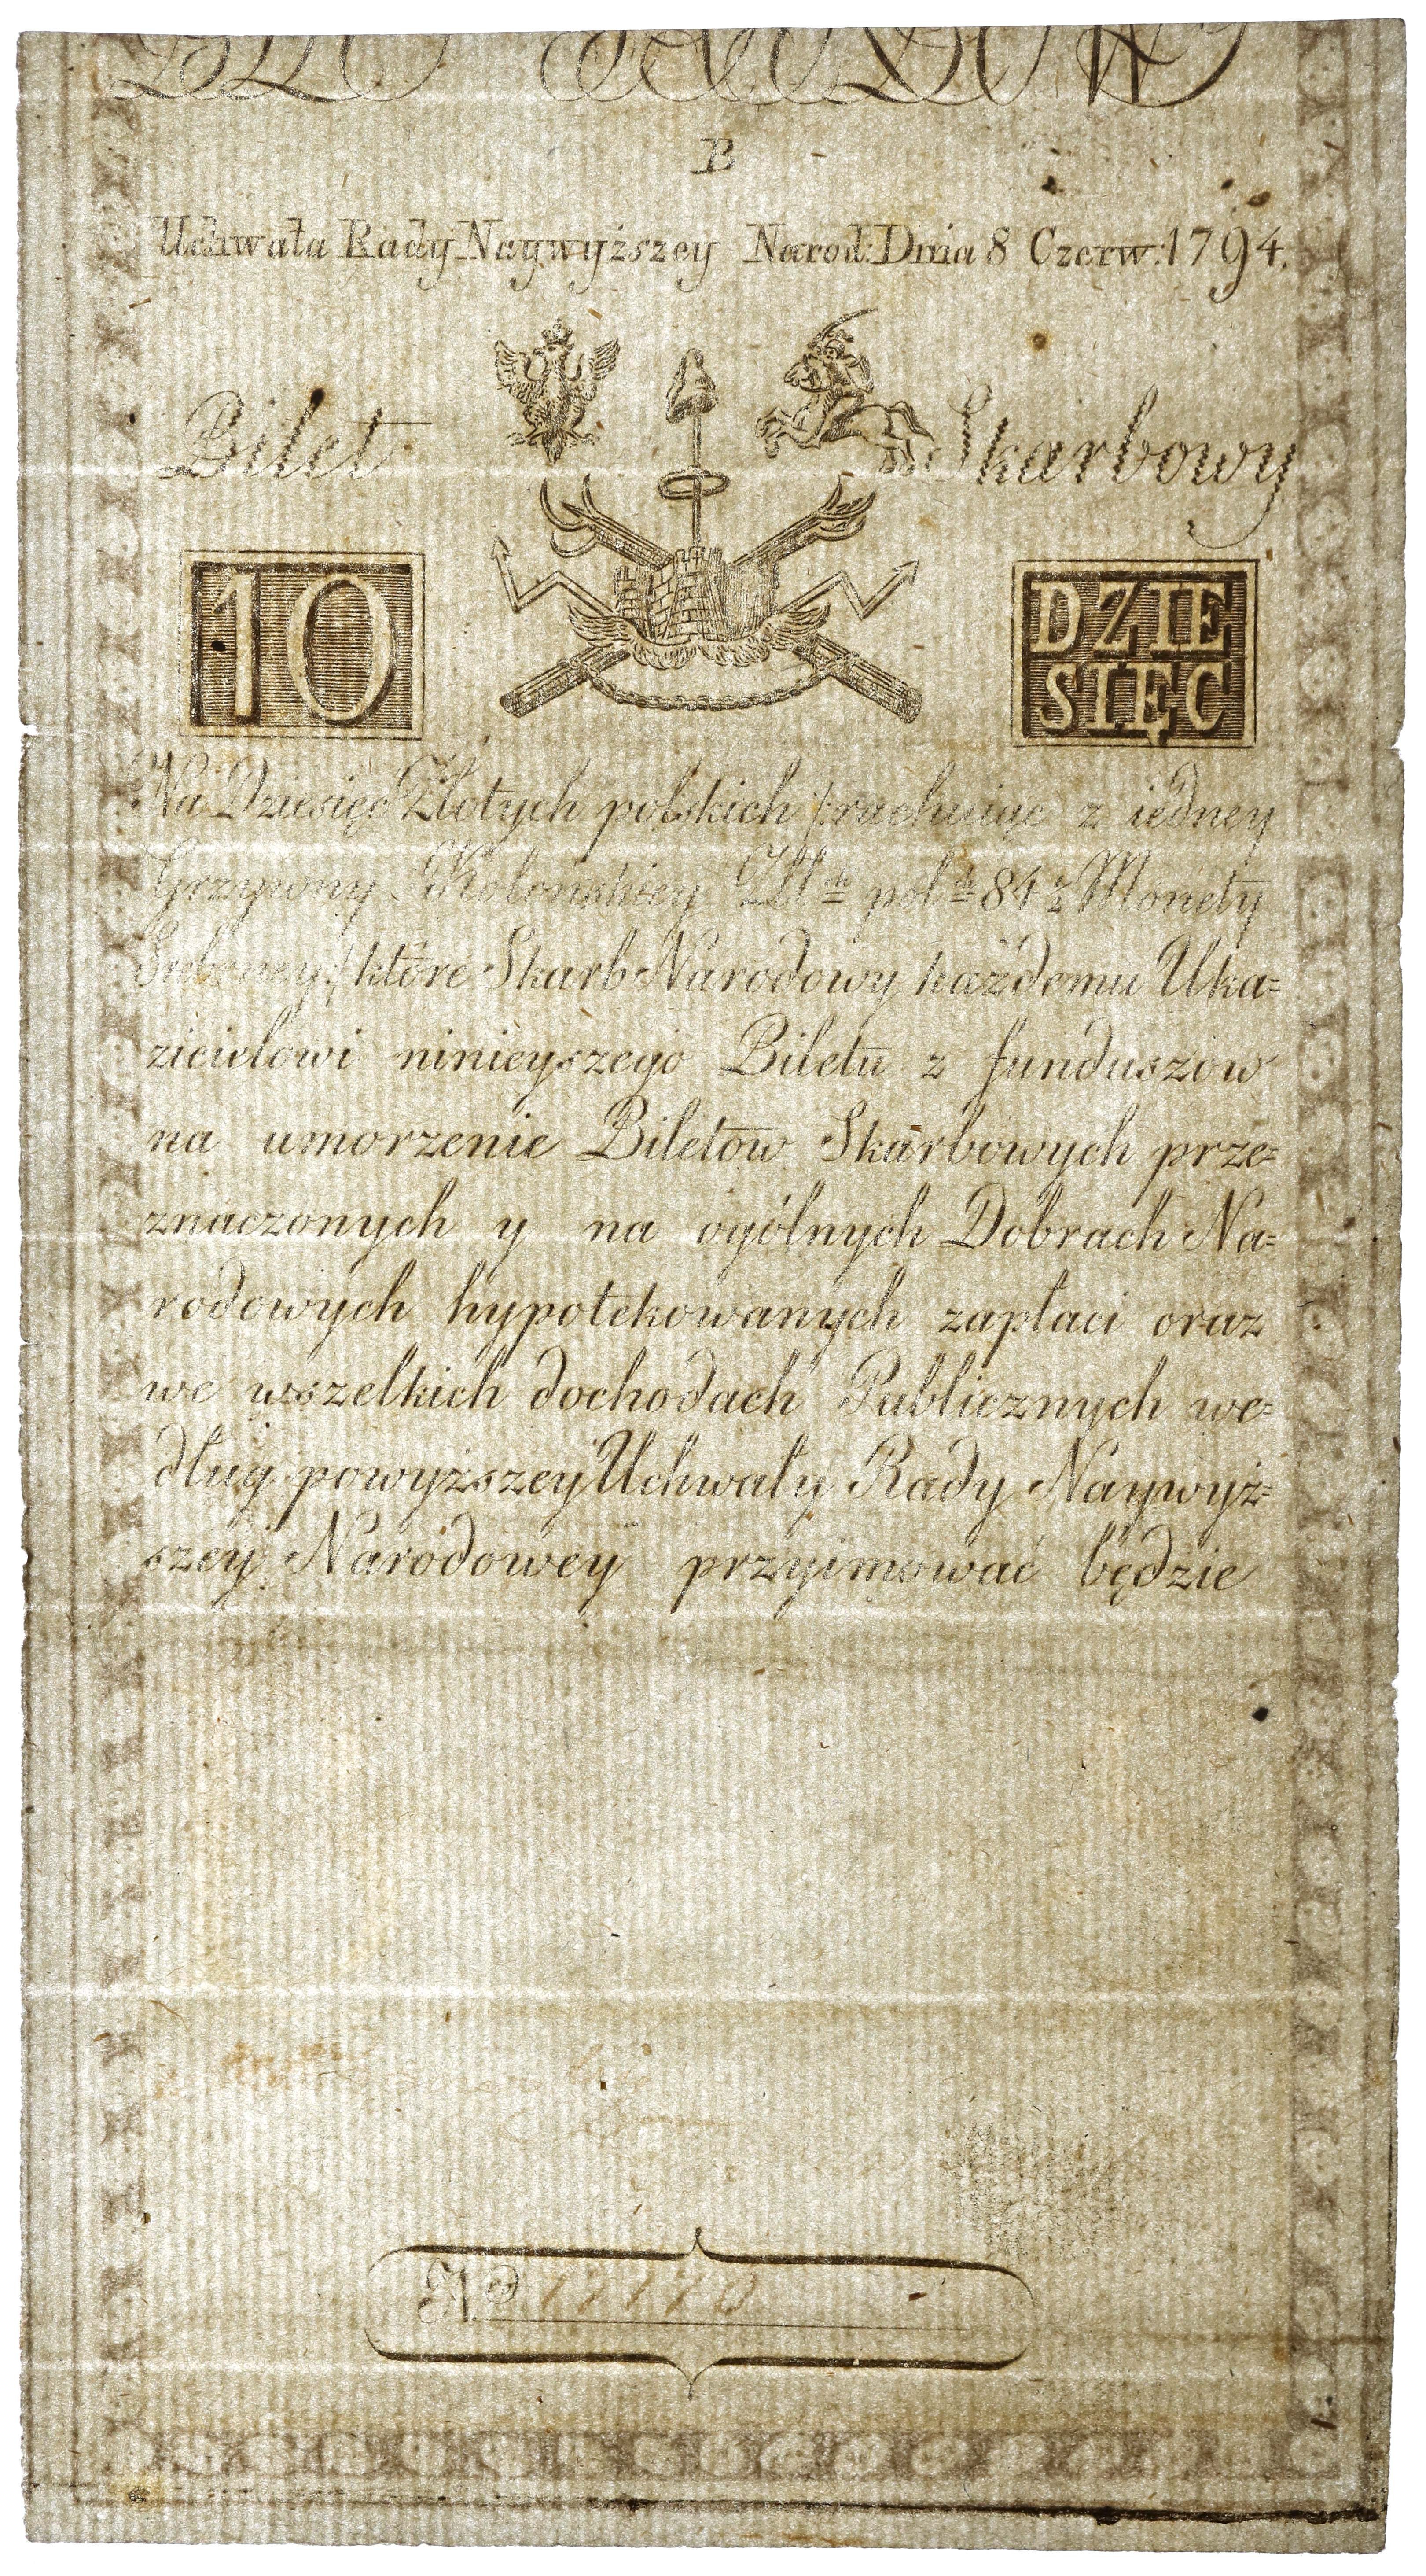 B
Uchwała Rady Naywyższey Narod: Dnia 8 Czerw: 1794.
Bilet Skarbowy
10 DZIE
SIĘC
Na Dziesięć Złotych polskich /:rachuiąc z iedney
Grzywny Kolonskiey Zł: pol: 84 z Monety
Srebrney:/ które Skarb Narodowy każdemu Uka=
zicielowi ninieyszego Biletu z funduszow
na umorzenie Biletow Skarbowych prze=
znaczonych y na ogólnych Dobrach Na=
rodowych hypotekowanych zapłaci oraz
we wszelkich dochodach Publicznych we=
dług powyższey Uchwały Rady Naywyż=
szey Narodowey przyimować będzie
No 17170